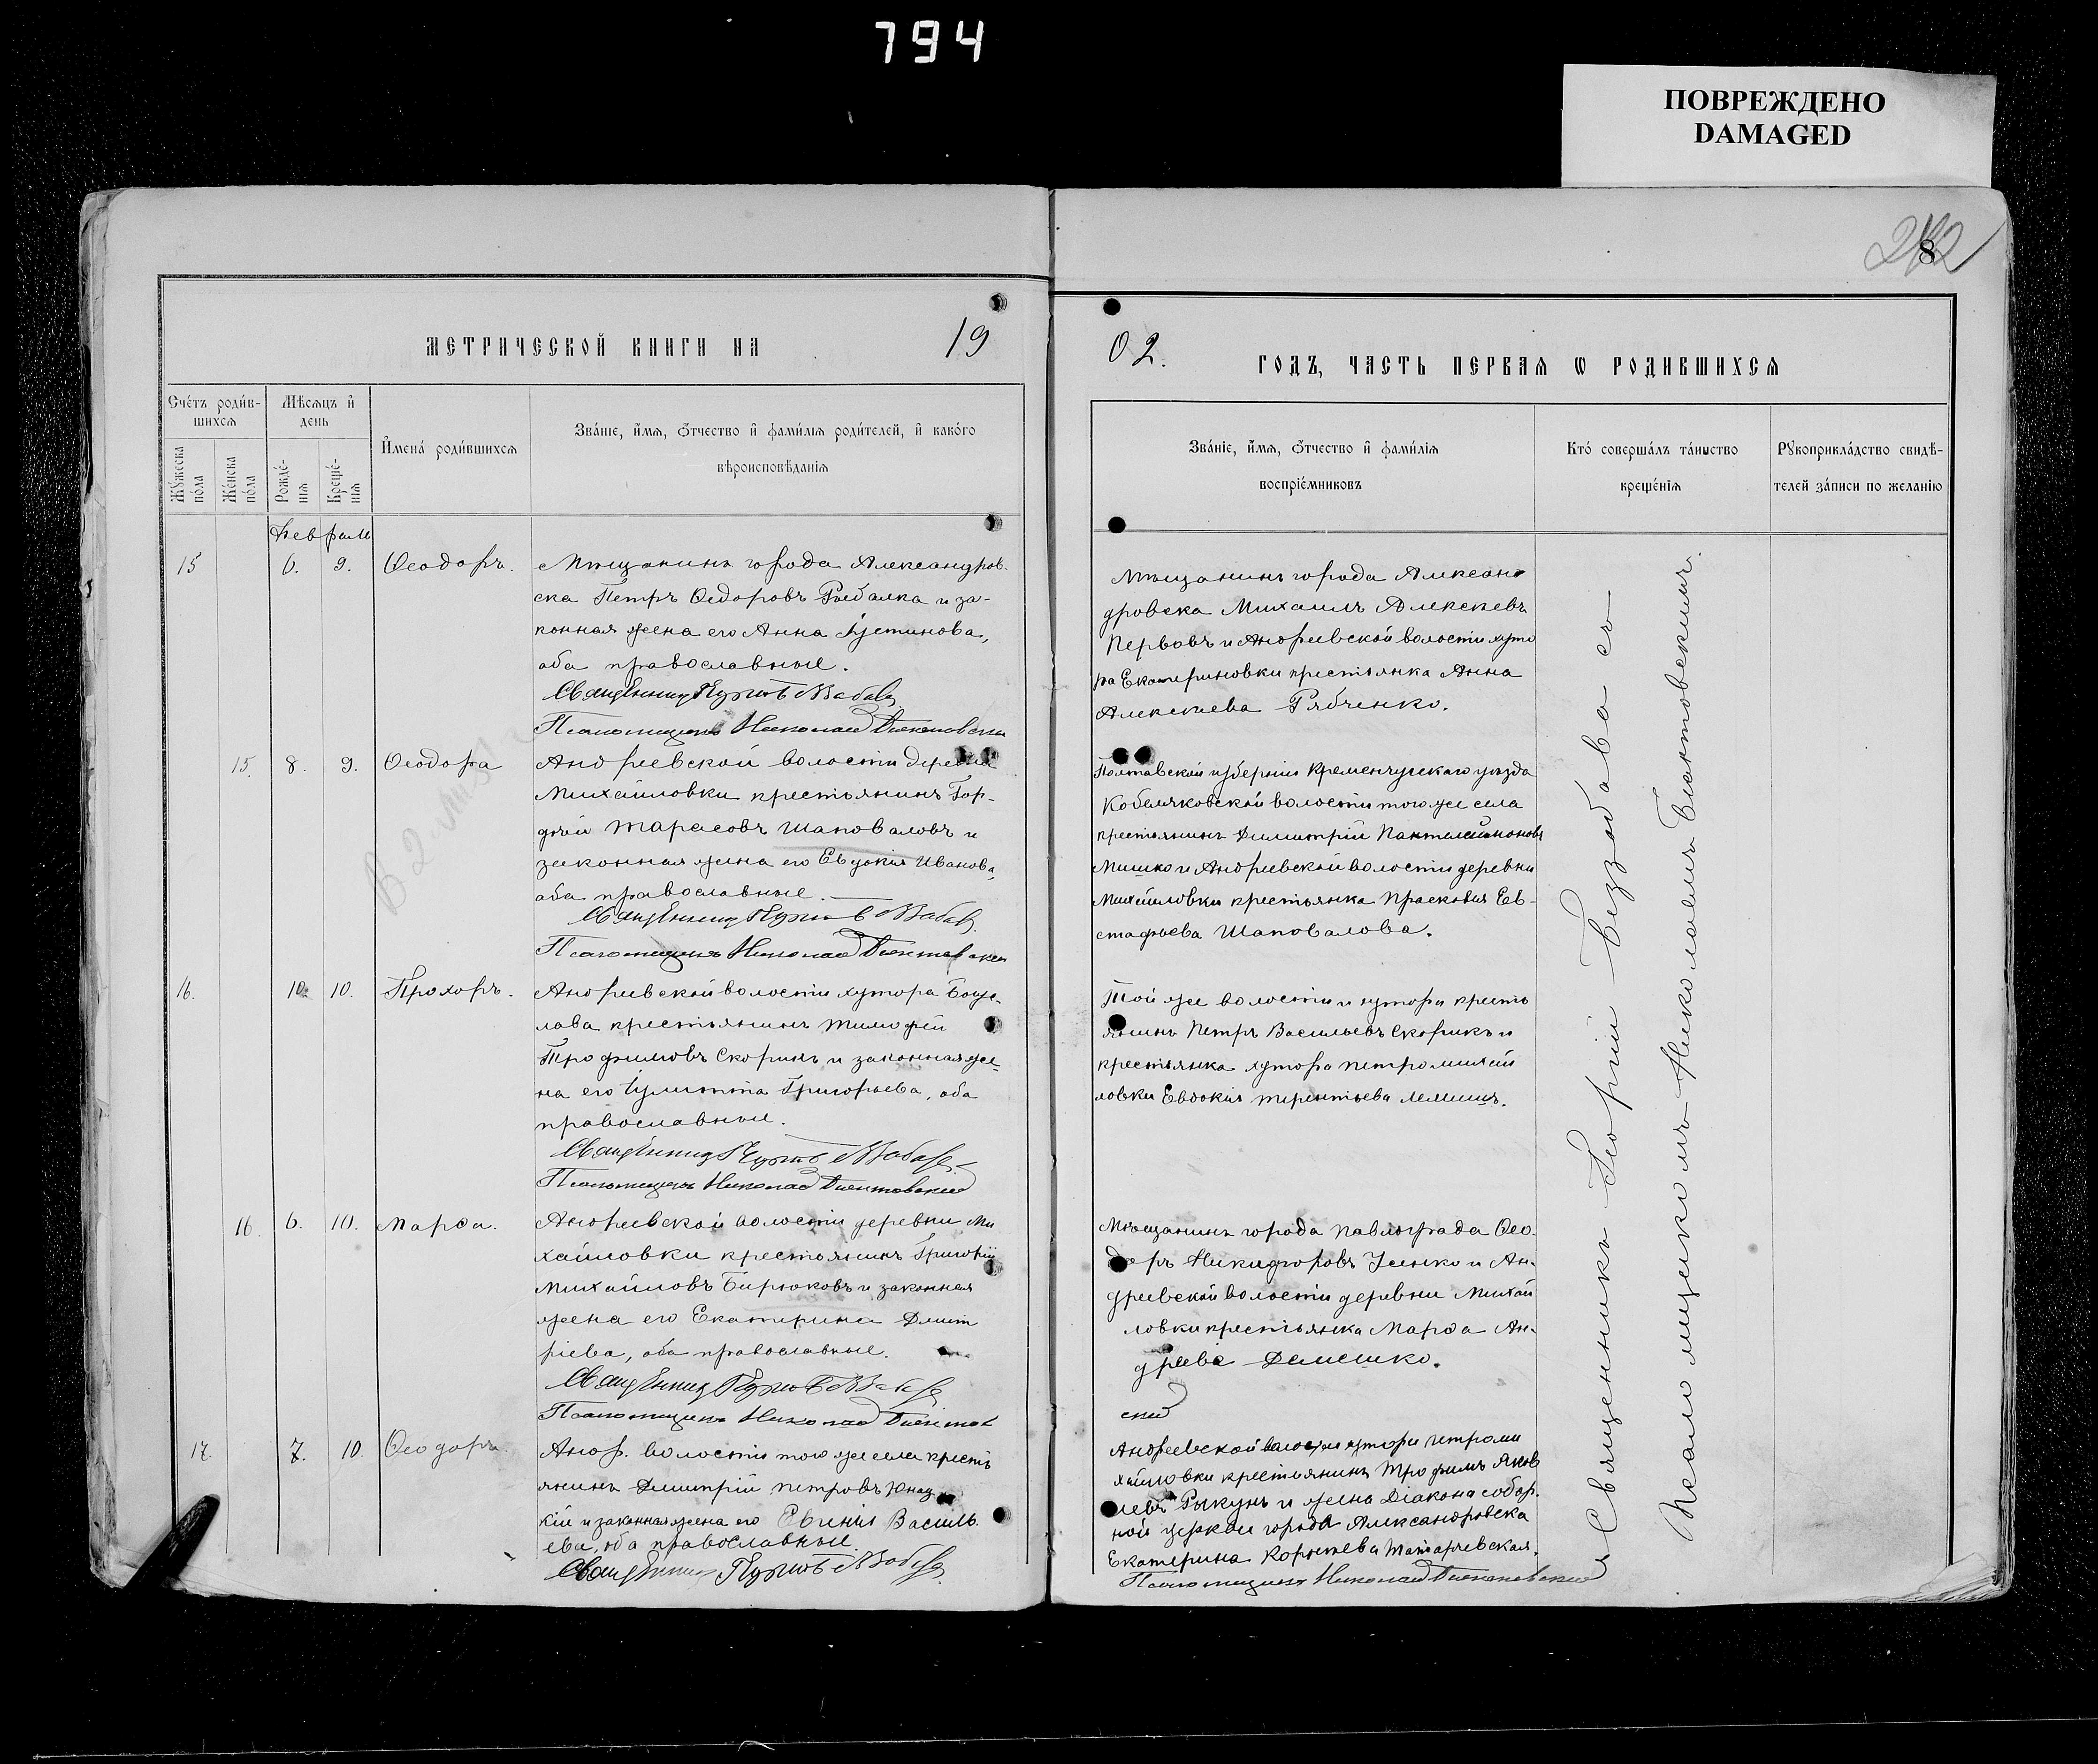 794
ПОВРЕЖДЕНО
DAMAGED
8
МЕТРИЧЕСКОЙ КНИГИ НА 19
Счетъ родив-
шихся
Мѣсяцъ и
день
Мужеска
пола
Женска
пола
Рожде-
нія
Креще-
нія
Имена родившихся
Званіе, имя, отчество и фамилія родителей, и какого
вѣроисповѣданія
Февраль
15 6. 9. Ѳеодоръ.
Мѣщанинъ города Александров-
ска Петръ Ѳедоровъ Рыбалка и за-
конная жена его Анна Іустинова,
оба православные.
Священник Георгій Беззабава
Псаломщикъ Николай Бѣлтовскій
15. 8. 9. Ѳеодора
Андреевской волости деревни
Михайловки крестьянинъ Гор-
дѣй Тарасовъ Шаповаловъ и
законная жена его Евдокія Иванова,
оба православные.
Псаломщикъ Николай
16. 10. 10. Прохоръ.
Андреевской волости хутора Бое-
лава крестьянинъ Тимофей
Трофимовъ Скорикъ и законная же-
на его Іулитта Григорьева, оба
православные.
Псаломщикъ Николай
16. 6. 10. Марѳа.
Андреевской волости деревни Ми
хайловки крестьянинъ Григорій
Михайловъ Бирюковъ и законная
жена его Екатерина Дмит
ріева, оба православные.
Псаломщикъ Николай
17. 7. 10. Ѳеодоръ.
Андр. волости того же села кресть
янинъ Димитрій Петровъ
кій и законная жена его Евгенія Василь
ева, оба православные.
02. ГОДЪ, ЧАСТЬ ПЕРВАЯ Ѡ РОДИВШИХСЯ
Званіе, имя, отчество и фамилія
воспріемниковъ
Кто совершалъ таинство
крещенія
Рукоприкладство свидѣ-
телей записи по желанію
Мѣщанинъ города Алексан
дровска Михаилъ Алексѣевъ
Перьовъ и Андреевской волости хуто
ра Екатериновки крестьянка Анна
Алексѣева Рябченко.
Полтавской губерніи Кременчугскаго уѣзда
Кобелякской волости того же села
крестьянинъ Димитрій Пантелеймоновъ
Мишко и Андреевской волости деревни
Михайловки крестьянка Прасковія Ев-
стафьева Шаповалова.
Той же волости и хутора кресть
янинъ Петръ Васильевъ Скорикъ и
крестьянка хутора Петромихай
ловки Евдокія Терентьева Лемишъ.
Мѣщанинъ города Павлограда Ѳео-
доръ Никифоровъ Усенко и Ан-
дреевской волости деревни Михай
ловки крестьянка Марѳа Ан-
дреева Демешко.
скій
Андреевской волости хутора Петроми
хайловки крестьянинъ Трофимъ Яков
левъ Рыкунъ и жена Діакона собор-
ной церкви города Александровска
Екатерина Корнѣева Татаревская.
Псаломщикъ Николай
Священникъ Георгій Беззабава со
Псаломщикомъ Николаемъ